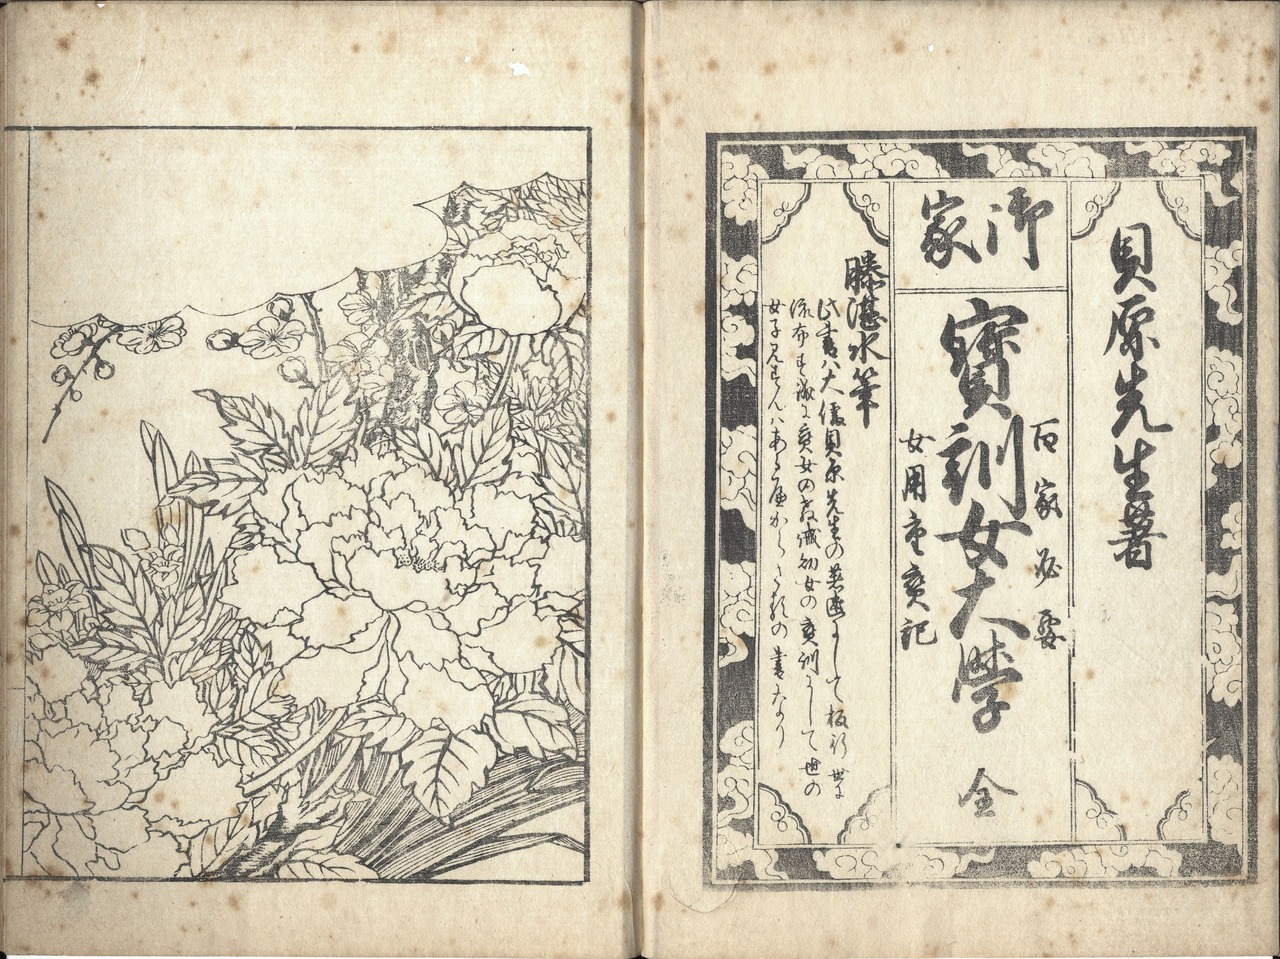 貝原先生著
御家
百家必要
寳訓女大學 全
女用重寳記
滕湛水筆
此書ハ大儒貝原先生の著述にして板行世に
流布す誠に貞女の教誡幼女の貞訓にして世の
女子見ずんばあるべからざるの書なり